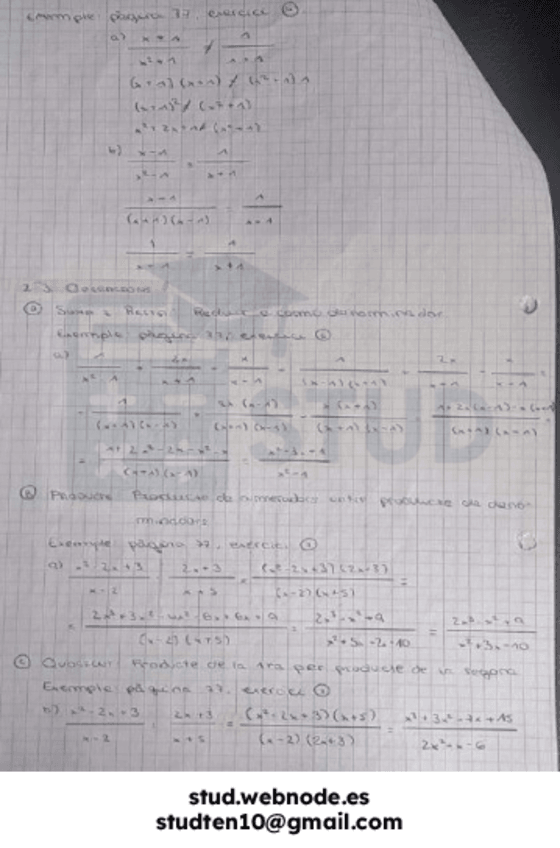 Exemple pàgina 77, exercici
a) x+1 / x²+1 ≠ 1 / x+1
(x+1)(x+1) ≠ (x²+1)1
(x+1)² ≠ (x²+1)
x²+2x+1 ≠ (x²+1)
b) x-1 / x²-1 = 1 / x+1
x-1 / (x+1)(x-1) = 1 / x+1
1 / x+1 = 1 / x+1
2.3
a Suma i Resta: Reduir a comú denominador
Exemple pàgina 77, exercici
a) 1 / x²-1 + 2x / x+1 - x / x-1 = 1 / (x-1)(x+1) + 2x / x+1 - x / x-1 =
= 1 / (x+1)(x-1) + 2x(x-1) / (x+1)(x-1) - x(x+1) / (x+1)(x-1) = 1+2x(x-1)-x(x+1) / (x+1)(x-1) =
= 1+2x²-2x-x²-x / (x+1)(x-1) = x²-3x+1 / x²-1
Producte: Producte de numeradors entre producte de deno-
minadors
Exemple pàgina 77, exercici
a) x²-2x+3 / x-2 · 2x+3 / x+5 = (x²-2x+3)(2x+3) / (x-2)(x+5) =
= 2x³+3x²-4x²-6x+6x+9 / (x-2)(x+5) = 2x³-x²+9 / x²+5x-2x-10 = 2x³-x²+9 / x²+3x-10
c Quocient: Producte de la 1ra per producte de la segona
Exemple pàgina 77, exercici
b) x²-2x+3 / x-2 : 2x+3 / x+5 = (x²-2x+3)(x+5) / (x-2)(2x+3) = x³+3x²-7x+15 / 2x²-x-6
STUD
stud.webnode.es
studten10@gmail.com